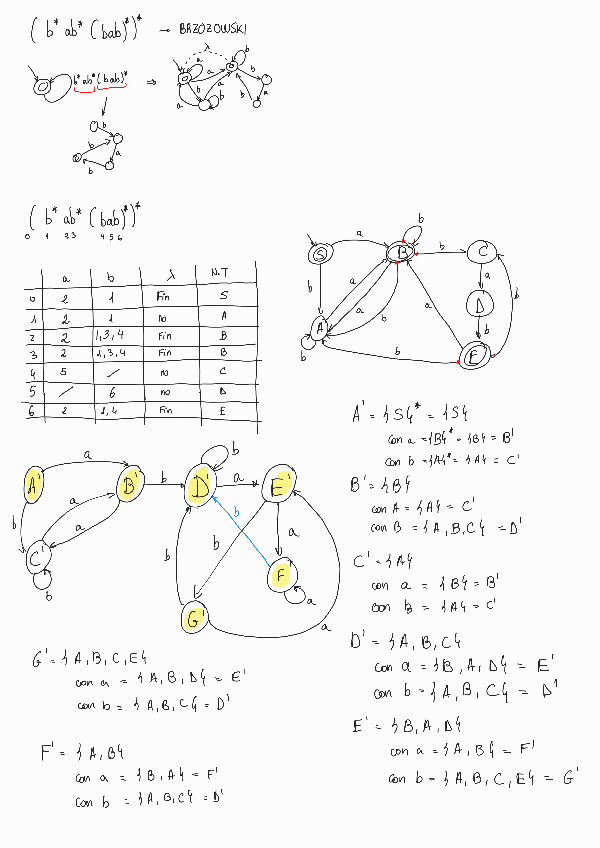 ( b* ab* ( bab)*)* → BRZOZOWSKI
λ
b* ab* (bab)* ⇒
a a b b b a b a b a b
b b a b
( b* ab* (bab)*)*
0 1 2 3 4 5 6
a b λ N.T
0 2 1 Fin S
1 2 1 no A
2 2 1,3,4 Fin B
3 2 1,3,4 Fin B
4 5 / no C
5 / 6 no D
6 2 1,4 Fin E
S a B b b C
b a a b a a D b
A b b b E
A' = {S}* = {S}
con a = {B}* = {B} = B'
con b = {A}* = {A} = C'
B' = {B}
con A = {A} = C'
con B = {A, B, C} = D'
C' = {A}
con a = {B} = B'
con b = {A} = C'
D' = {A, B, C}
con a = {B, A, D} = E'
con b = {A, B, C} = D'
E' = {B, A, D}
con a = {A, B} = F'
con b = {A, B, C, E} = G'
A' a B' b D' b a E'
b a a b b b a
C' b G' F' a a
G' = {A, B, C, E}
con a = {A, B, D} = E'
con b = {A, B, C} = D'
F' = {A, B}
con a = {B, A} = F'
con b = {A, B, C} = D'